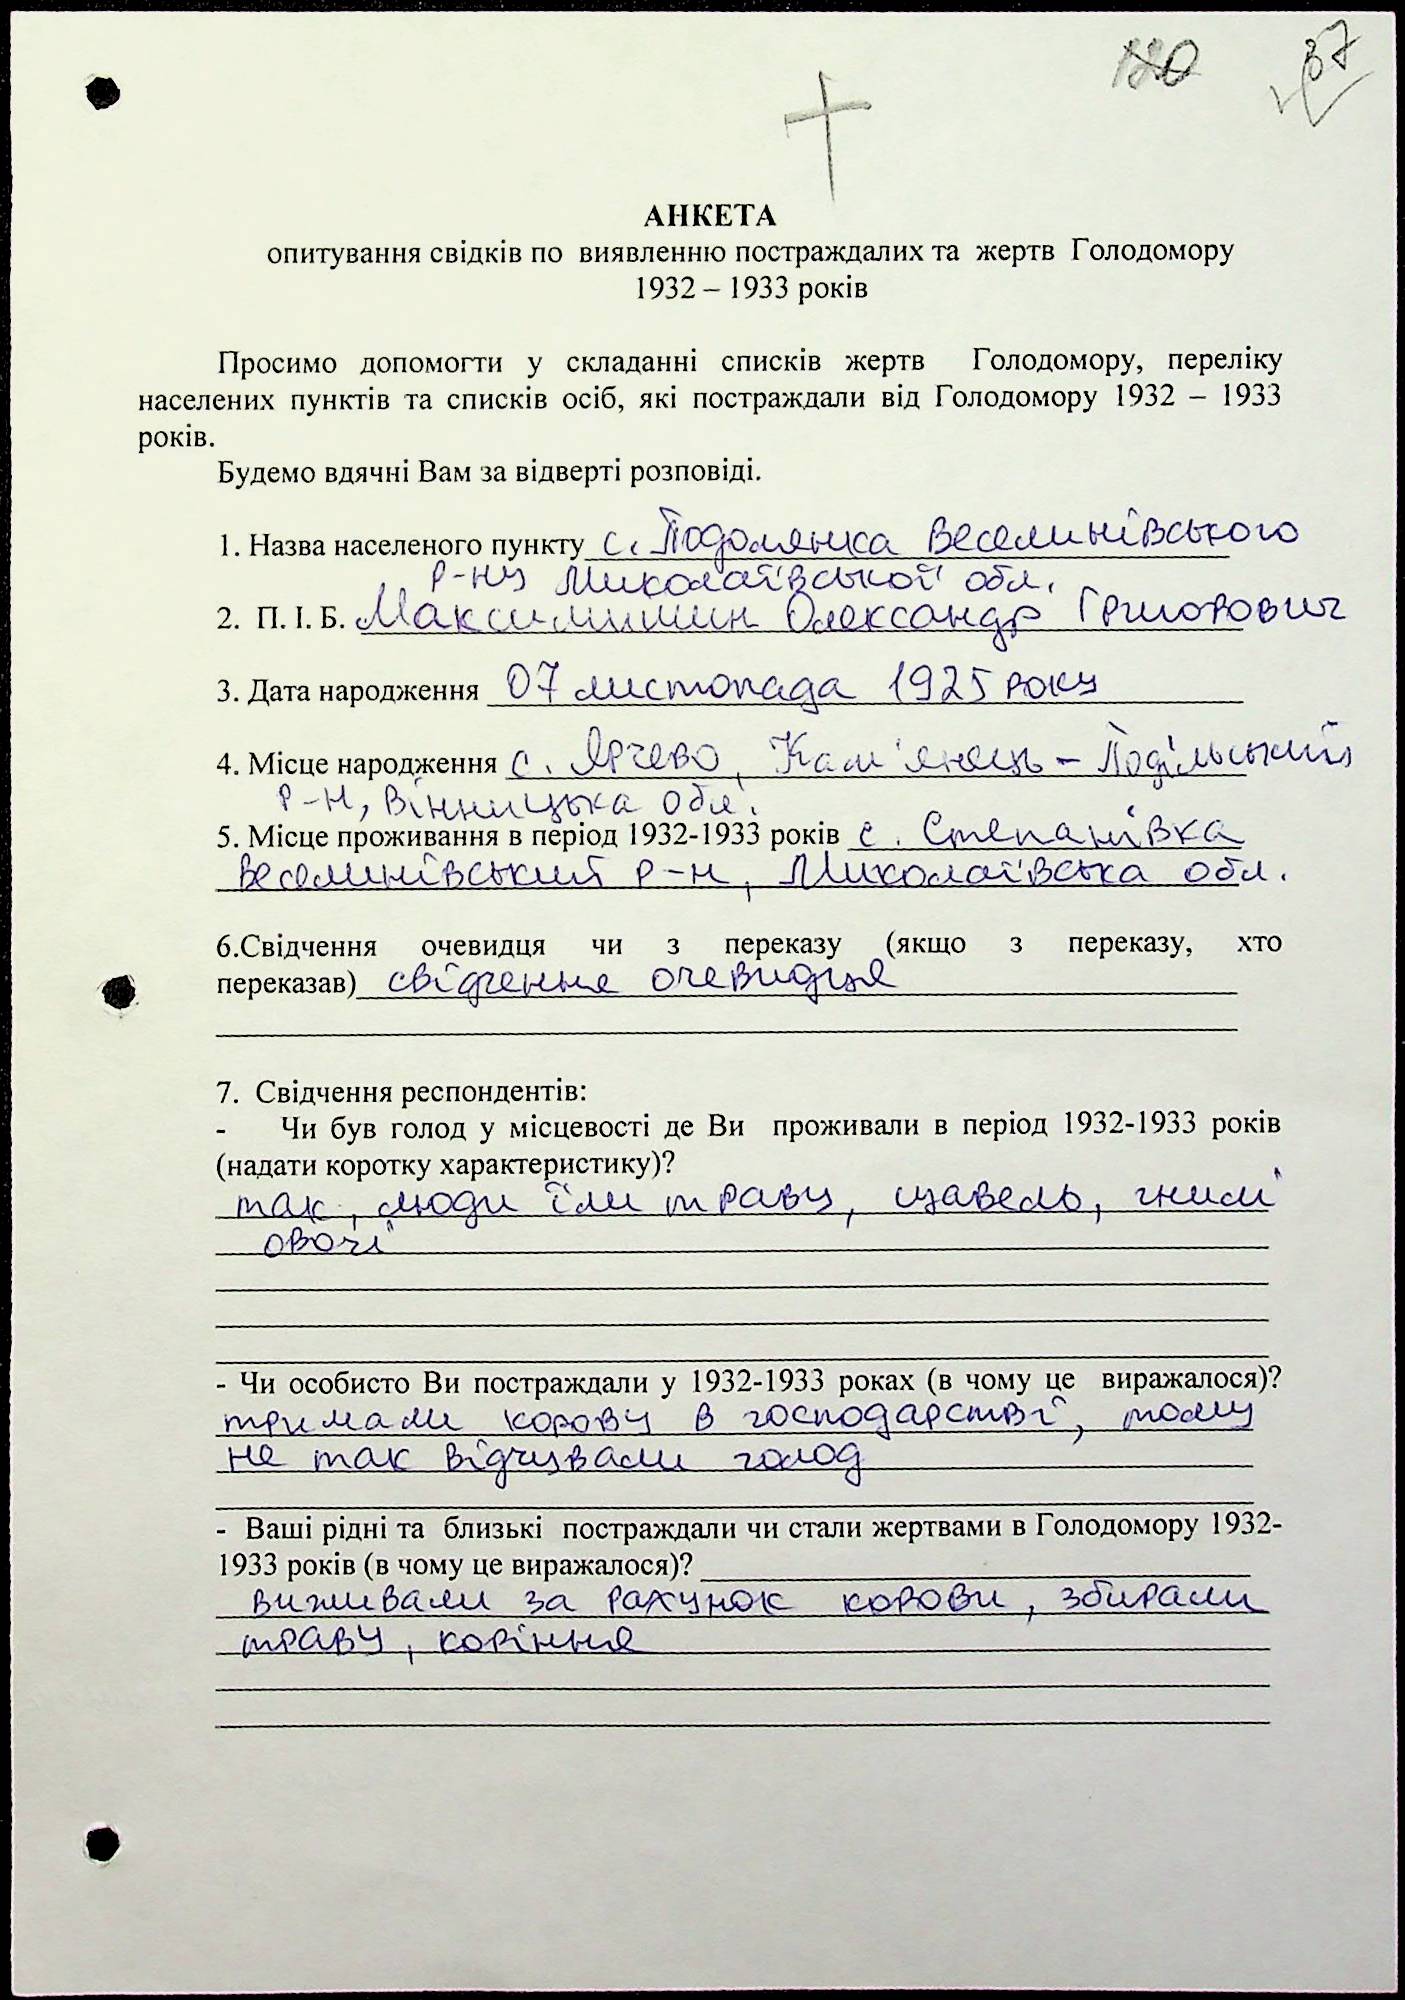 120 87
АНКЕТА
опитування свідків по виявленню постраждалих та жертв Голодомору
1932 – 1933 років
Просимо допомогти у складанні списків жертв Голодомору, переліку
населених пунктів та списків осіб, які постраждали від Голодомору 1932 – 1933
років.
Будемо вдячні Вам за відверті розповіді.
1. Назва населеного пункту с. Подолянка Веселинівського
р-ну Миколаївської обл.
2. П. І. Б. Олександр Григорович
3. Дата народження 07 листопада 1925 року
4. Місце народження с. Ярчево, Кам'янець-Подільський
р-н, Вінницька обл.
5. Місце проживання в період 1932-1933 років с. Степанівка
Веселинівський р-н, Миколаївська обл.
6.Свідчення очевидця чи з переказу (якщо з переказу, хто
переказав) свідчення очевидця
7. Свідчення респондентів:
- Чи був голод у місцевості де Ви проживали в період 1932-1933 років
(надати коротку характеристику)?
так, люди їли траву, щавель, гнилі
овочі
- Чи особисто Ви постраждали у 1932-1933 роках (в чому це виражалося)?
тримали корову в господарстві, тому
не так відчували голод
- Ваші рідні та близькі постраждали чи стали жертвами в Голодомору 1932-
1933 років (в чому це виражалося)?
виживали за рахунок корови, збирали
траву, коріння